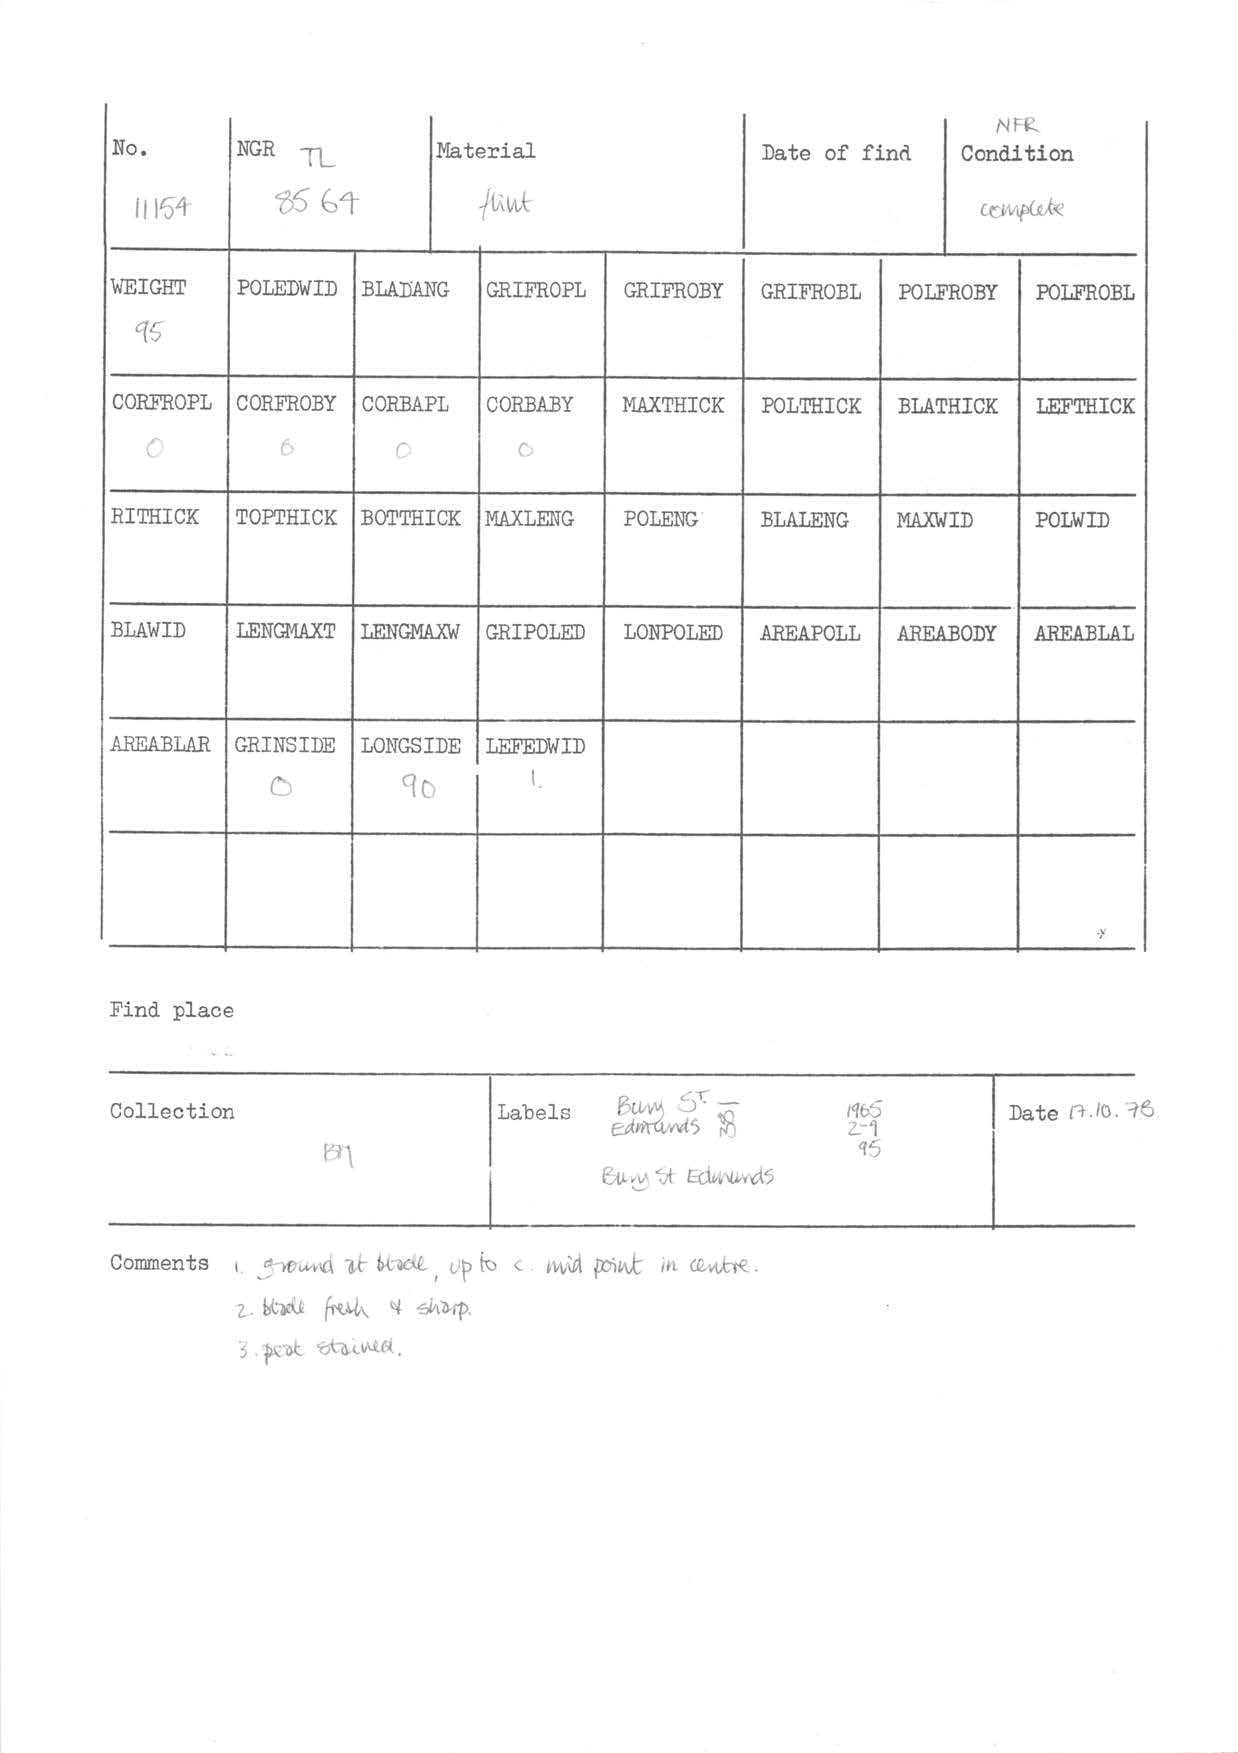 NFR
No. NGR TL Material Date of find Condition
11154 85 64 flint complete
WEIGHT POLEDWID BLADANG GRIFROPL GRIFROBY GRIFROBL POLFROBY POLFROBL
95
CORFROPL CORFROBY CORBAPL CORBABY MAXTHICK POLTHICK BLATHICK LEFTHICK
0 0 0 0
RITHICK TOPTHICK BOTTHICK MAXLENG POLENG BLALENG MAXWID POLWID
BLAWID LENGMAXT LENGMAXW GRIPOLED LONPOLED AREAPOLL AREABODY AREABLAL
AREABLAR GRINSIDE LONGSIDE LEFEDWID
0 90 1.
Find place
Collection Labels Bury St. 1965 Date 17.10.78
Edmunds 2-9
95
BM
Bury St Edmunds
Comments 1. ground at blade, up to c. mid point in centre.
2. blade fresh & sharp.
3. peat stained.